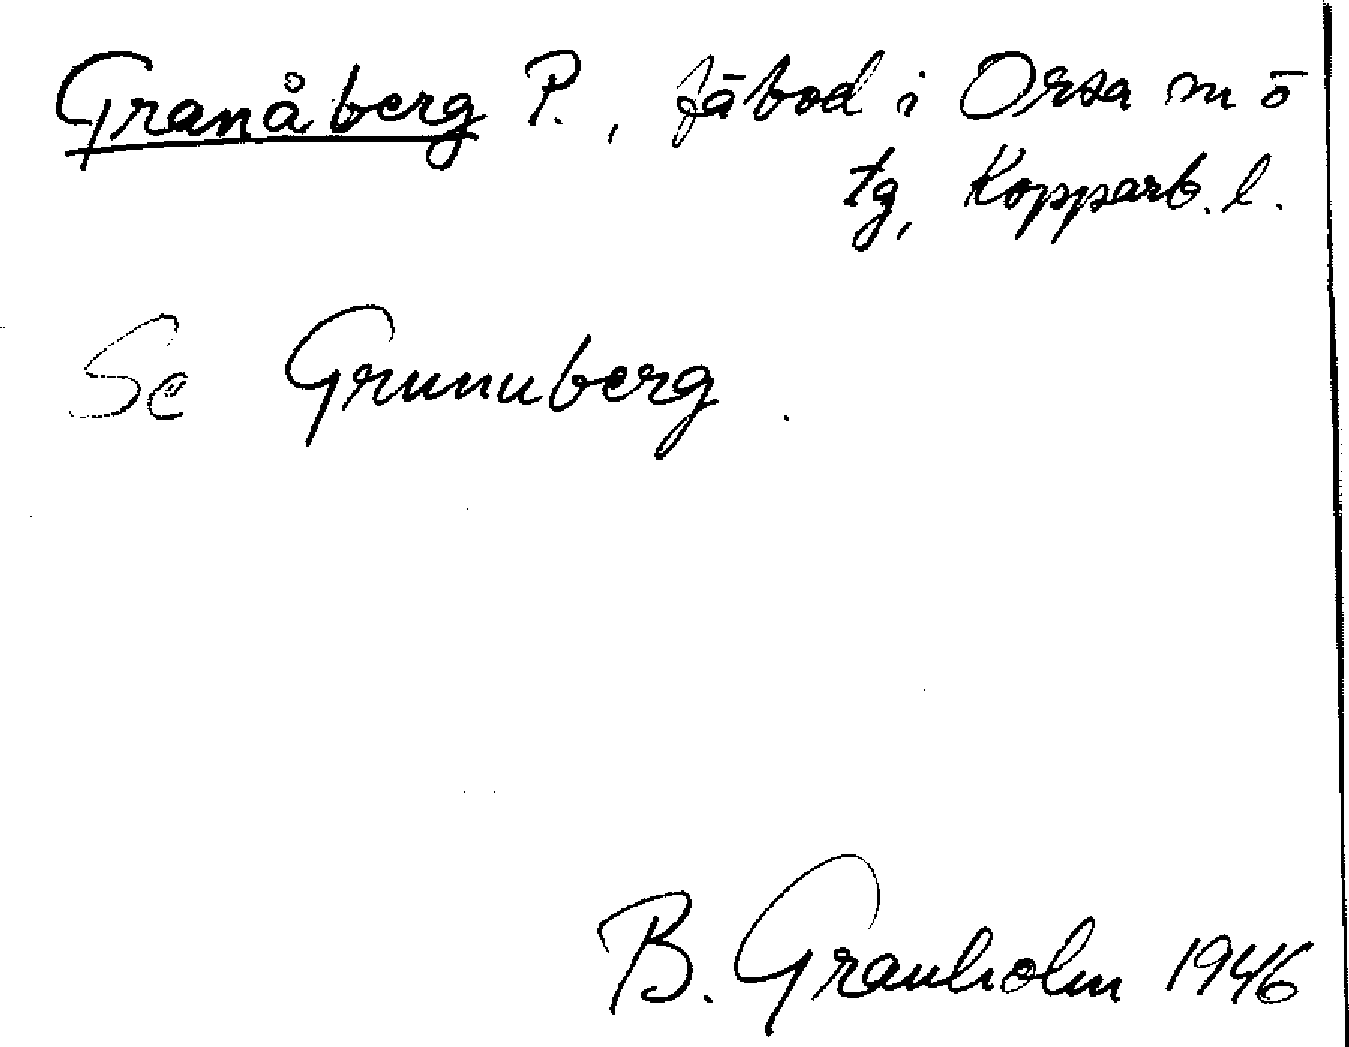 Granåberg P., fäbod i Orsa m ö
tg, Kopparb. l.
Se Grunuberg.
B. Granholm 1946